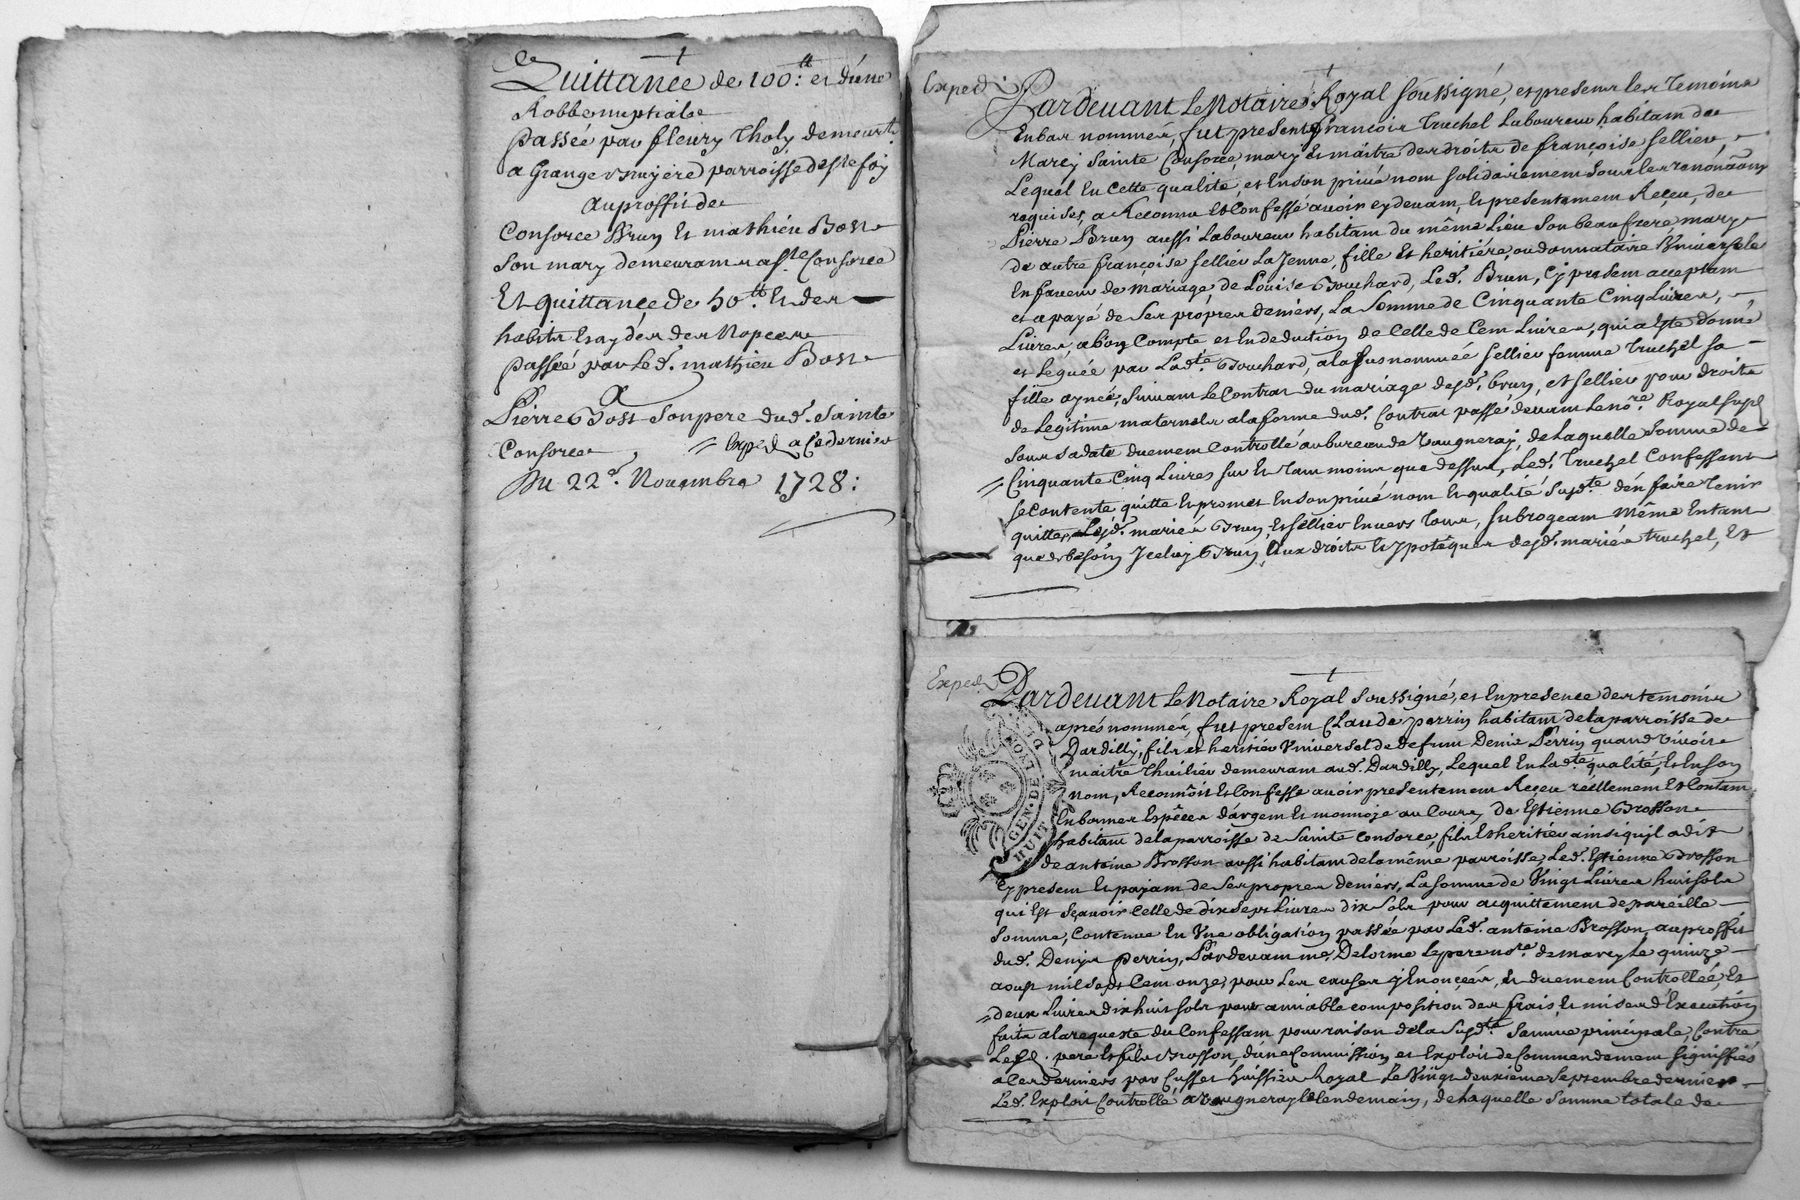 Quittance de 100:ᵗᵗ et d'une
Robbe nuptiale
passée par fleury Tholy demeurᵗ
a Grange bruyere parroisse de sᵗᵉ foy
au proffit de
Consorce Brun et mathieu Bost
son mary demeurant a sᵗᵉ Consorce
Et quittance de 50ᵗᵗ et des
habits et des Nopces
passée par led. mathieu Bost
A
Pierre Bost son pere dud. Sainte
Consorce
Exped a ce dernier
Du 22ᵉ. Novembre 1728:
Exped
Pardevant Le Notaire Royal soussigné, et presens les Temoins
En bas nommés, fut present François Truchel Laboureur habitant de
Marcy Sainte Consorce mary et maitre des droits de françoise sellier,
Lequel En cette qualité, et En son privé nom solidairement sous les renonaōns
requises, a Reconnu et Confessé avoir cydevant, et presentement Reçeu, de
Pierre Brun aussi Laboureur habitant du même Lieu son beaufrere mary
de autre françoise sellier La Jeune, fille et heritiére, ou donnataire Universele
En faveur de mariage de Louise Bouchard, Led. Brun, cy present acceptant
et a payé de ses propres deniers, La Somme de Cinquante Cinq Livres,
Livres, a bon Compte et En deduction de Celle de Cent Livres, qui a Esté donné
et Leguée par Ladᵗᵉ Bouchard, a la susnommée sellier femme Truchel sa
fille aynée, suivant Le Contrat du mariage desd. brun, et sellier pour droits
de Legitime maternels a la forme dud. Contrat passé devant Le noʳᵉ Royal supl
sous sa date duement Controllé au bureau de Vaugneray, de Laquelle Somme de
Cinquante Cinq Livres sur et tant moins que dessus, Led. Truchel Confessant
se contente quitte et promet En son privé nom et qualité susdᵗᵉ. d'en faire Tenir
quittes Lesd. mariés Brun, et sellier Envers tous, subrogeant même En tant
que de besoin Iceluy Brun, aux droits et ypotêques desd. mariés truchel, Et
Exped
Pardevant Le Notaire Royal soussigné, et En presence des temoins
aprés nommés, fut present Claude perrin habitant de la parroisse de
Dardilly, fils et heritier Universel de defunt Denis Perrin quand vivoit
maitre Thuilier demeurant aud. Dardilly, Lequel En Ladᵗᵉ qualité, et En son
nom, Reconnoît et Confesse avoir presentement Reçeu réellement et Contant
En bonnes Espêces d'argent et monnoye au Cours, de Estienne Brosson
habitant de la parroisse de Sainte Consorce, fils et heritier ainsi quil a dit
de antoine Brosson aussi habitant de la même parroisse, Led. Estienne Brosson
Cy present et payant de ses propres deniers, La somme de Vingt Livres huit sols
qui Est sçavoir Celle de dix sept Livres dix sols pour acquittement de pareille
Somme, Contenue En Une obligation passée par Led. antoine Brosson, au proffit
dud. Denys perrin, Pardevant mᵉ Delorme Le pere noʳᵉ de marcy Le quinze
aoust mil sept Cent onze, pour Les causes y Enoncées, et duement Controllée, Et
deux Livres dix huit sols pour amiable composition des frais et mises d'Execution
faits a la requeste du Confessant pour raison de la susdᵗᵉ somme principale, Contre
Lesd. pere et fils Brosson, d'une Commission et Exploit de Commandement signiffiés
a Ces derniers par Cusset huissier Royal Le Vingt deuxieme septembre dernier
Led. Exploit Controllé a vaugneray le lendemain, de Laquelle somme totale de
GEN·DE LYON
HUIT D